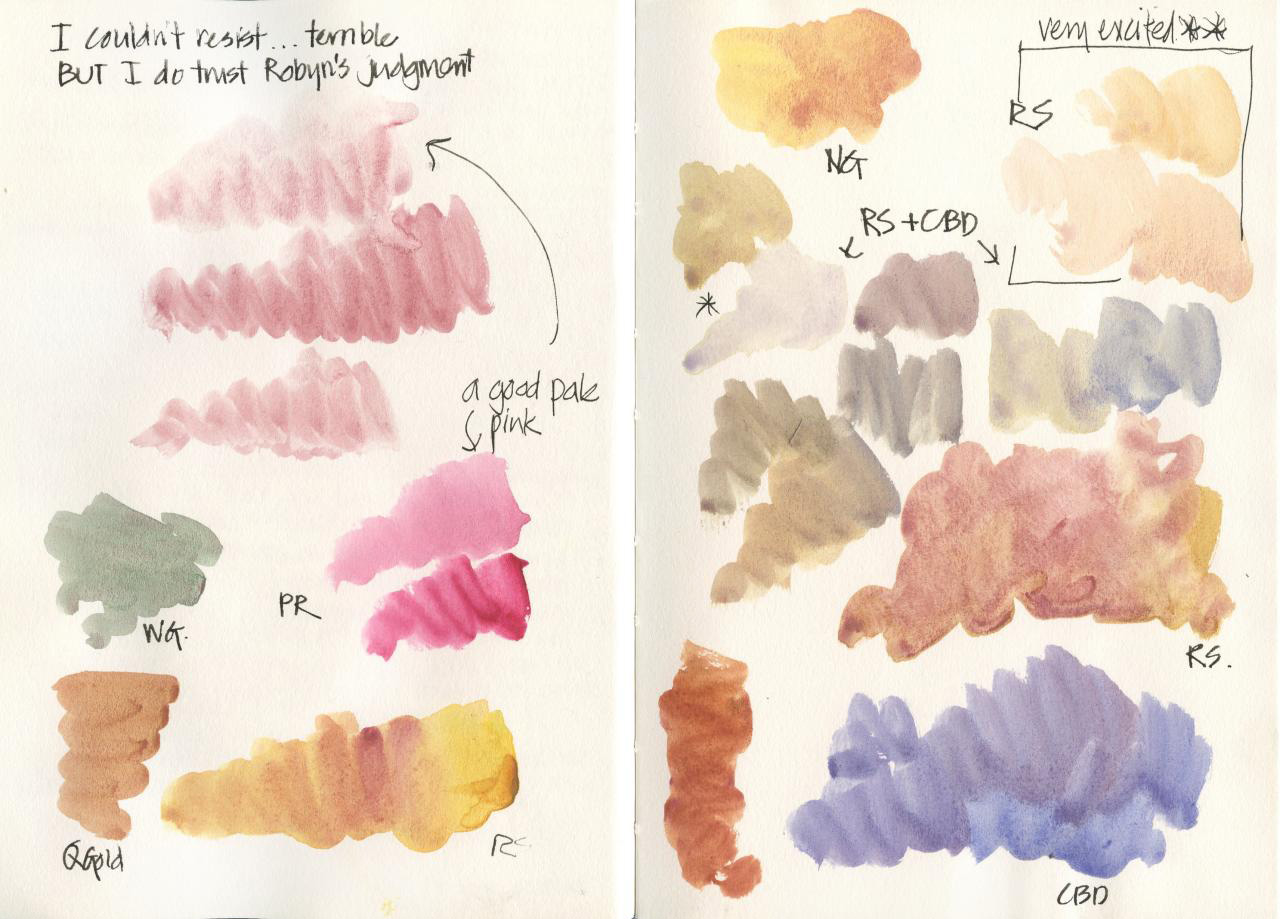 I couldn't resist... terrible
BUT I do trust Robyn's judgment
a good pale
pink
WG.
PR
QGold
RS
very excited**
NG
RS
RS + CBD
*
RS.
CBD